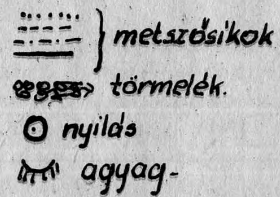 metszősíkok
törmelék.
nyilás
agyag-